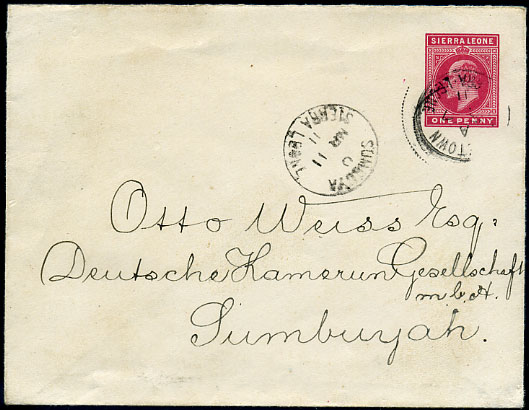 SIERRA LEONE
ONE PENNY
TOWN
SIERRA LEONE
MR 11
11
Otto Weiss Esq:
Deutsche Kamerun Gesellschaft
m.b.H.
Sumbuyah.